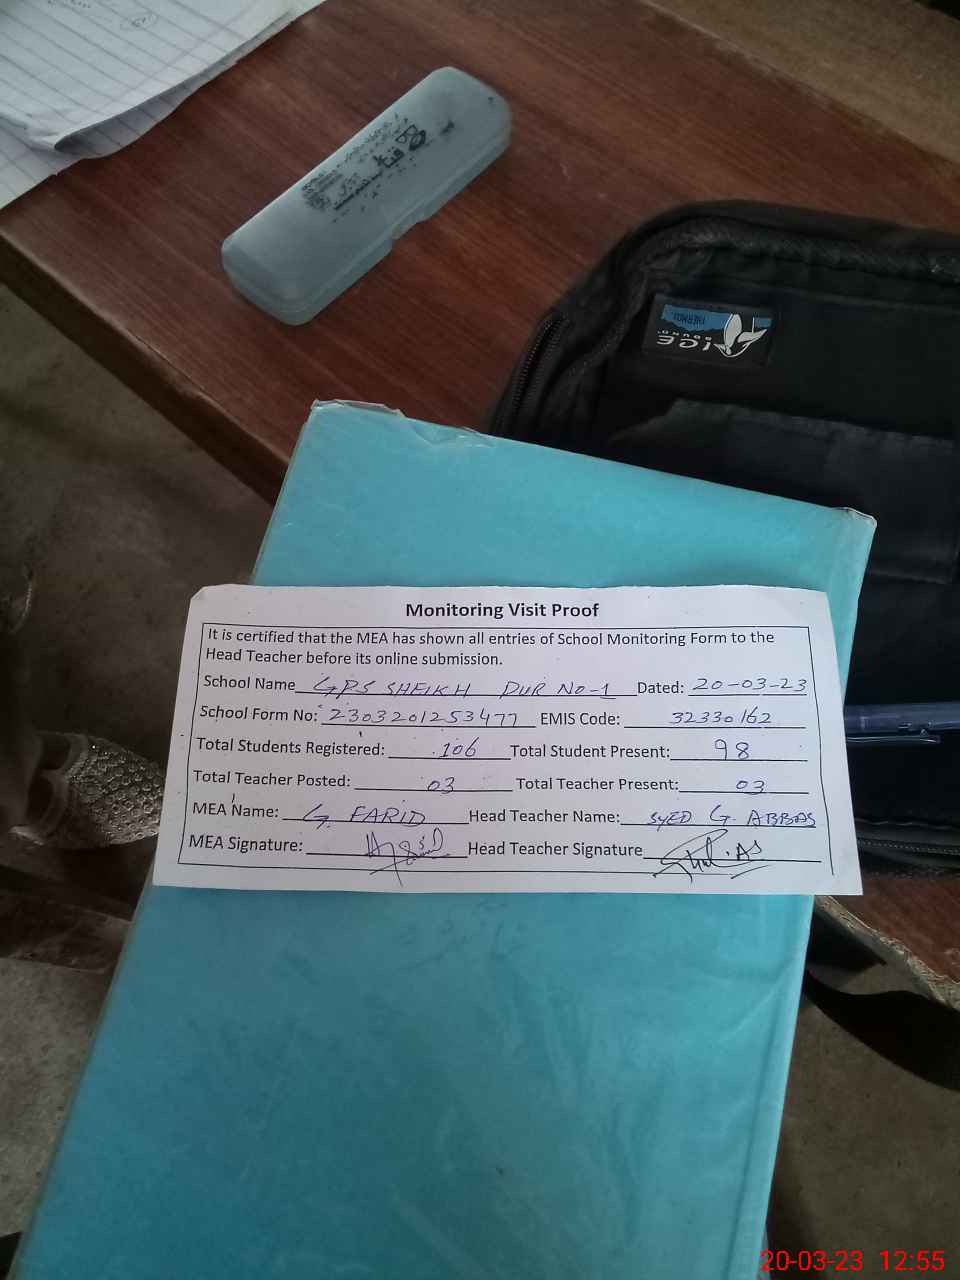 ICE
SOUND
THERMOS
Monitoring Visit Proof
It is certified that the MEA has shown all entries of School Monitoring Form to the
Head Teacher before its online submission.
School Name GPS SHEIKH PUR NO-1 Dated: 20-03-23
School Form No: 2303201253477 EMIS Code: 32330162
Total Students Registered: 106 Total Student Present: 98
Total Teacher Posted: 03 Total Teacher Present: 03
MEA Name: G. FARID Head Teacher Name: SYED G. ABBAS
MEA Signature: Head Teacher Signature
20-03-23 12:55